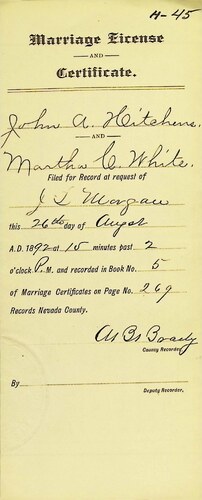 H-45
Marriage License
AND
Certificate.
John A. Hitchens.
AND
Martha C. White.
Filed for Record at request of
J L Morgan
this 26th day of Augst
A.D. 1892 at 15 minutes past 2
o'clock P. M, and recorded in Book No. 5
of Marriage Certificates on Page No. 269
Records Nevada County.
Brady
County Recorder
By
Deputy Recorder.